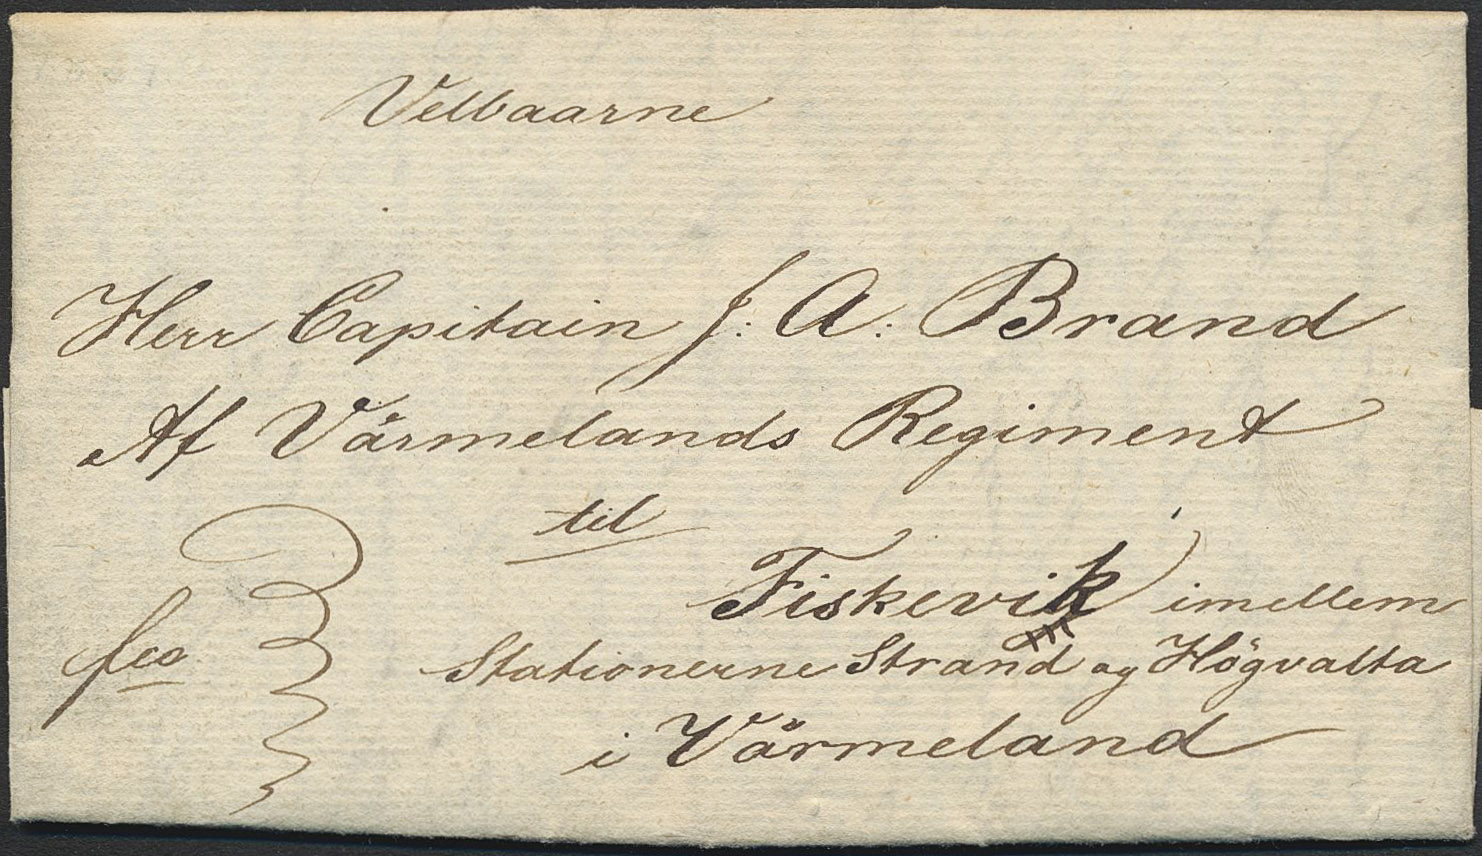 Velbaarne
Herr Capitain J: A: Brand
Af Värmelands Regiment
til
Fiskevik imellem
fco Stationerne Strand og Högvalta
i Värmeland